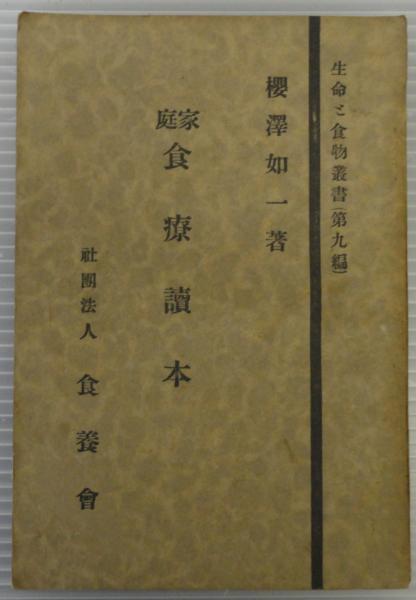 生命と食物叢書（第九編）
櫻澤如一著
家庭食療讀本
社團法人 食養會